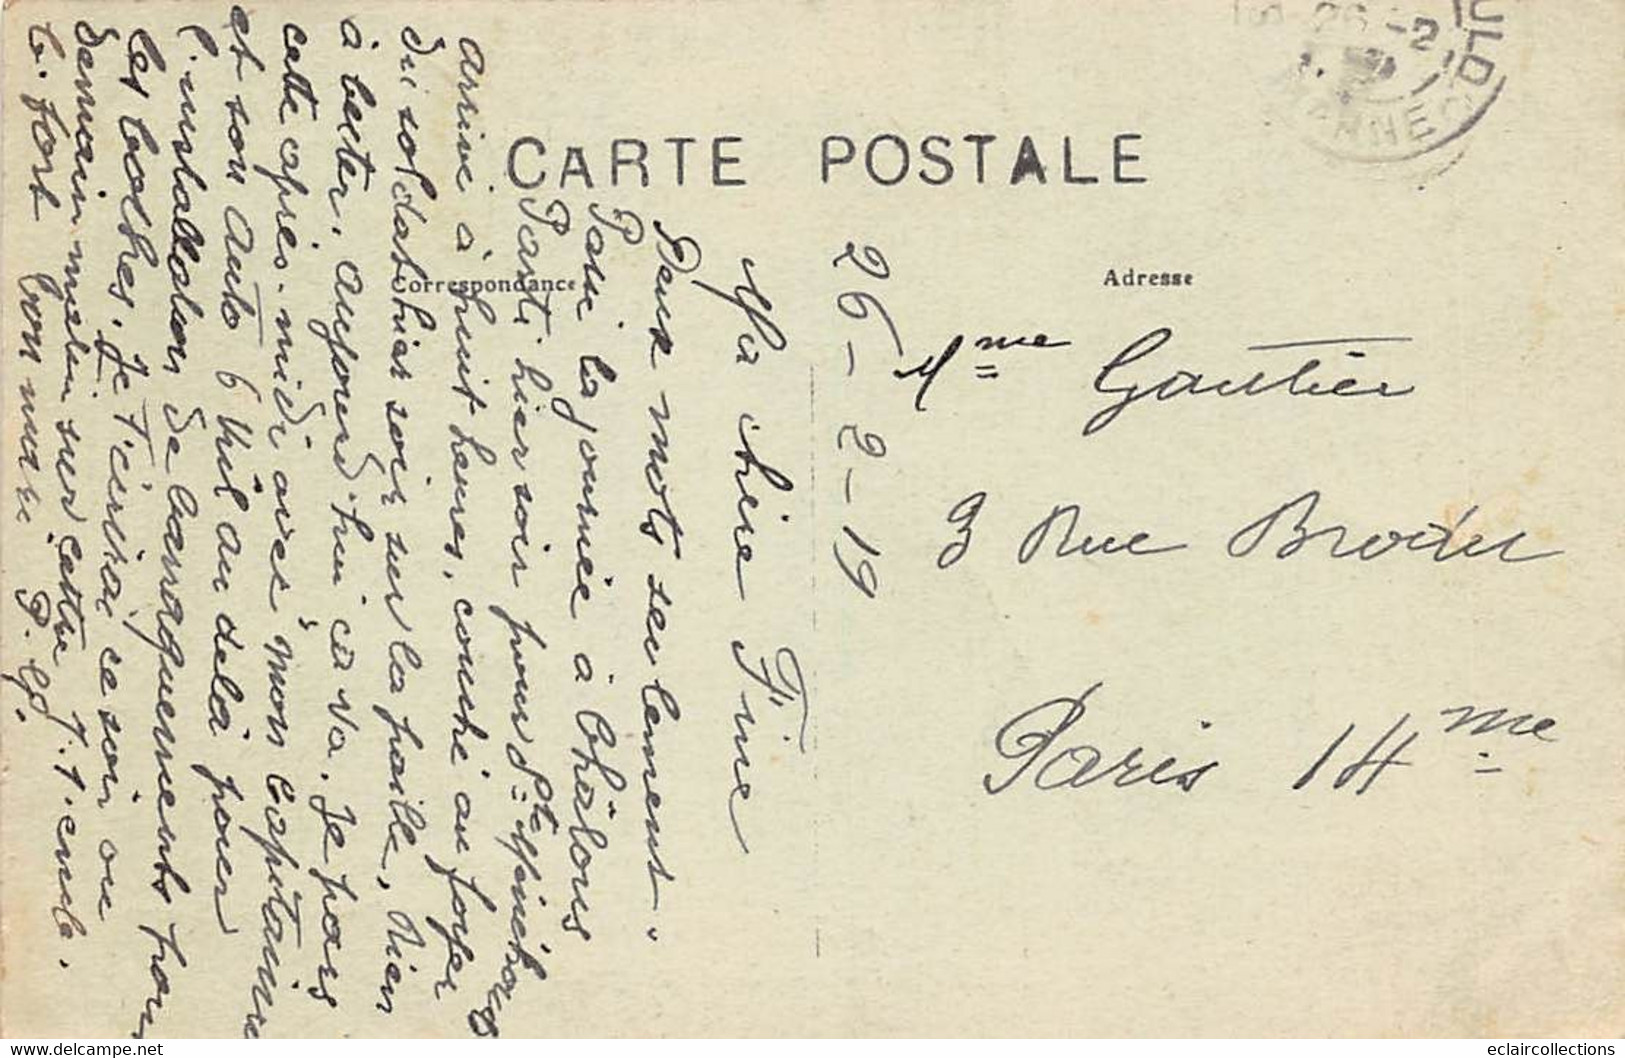 CARTE POSTALE
Correspondance
Adresse
26-2-19
Ma chère Fine
Deux mots seulement.
Passé la journée à Châlons
Parti hier soir pour Ste Menehould
arrivé à huit heures, couché au foyer
du soldat hier soir sur la paille, rien
à becter, aujourd'hui ça va. Je pars
cette après-midi avec mon Capitaine
et son auto 6 Kil au delà pour
l'installation de baraquements pour
les boches. Je t'écrirai ce soir ou
demain matin sur cette
Ton mari P. G.
Mme Gautier
3 Rue
Paris 14me
26 -2
OULD
MARNE
www.delcampe.net
eclaircollections